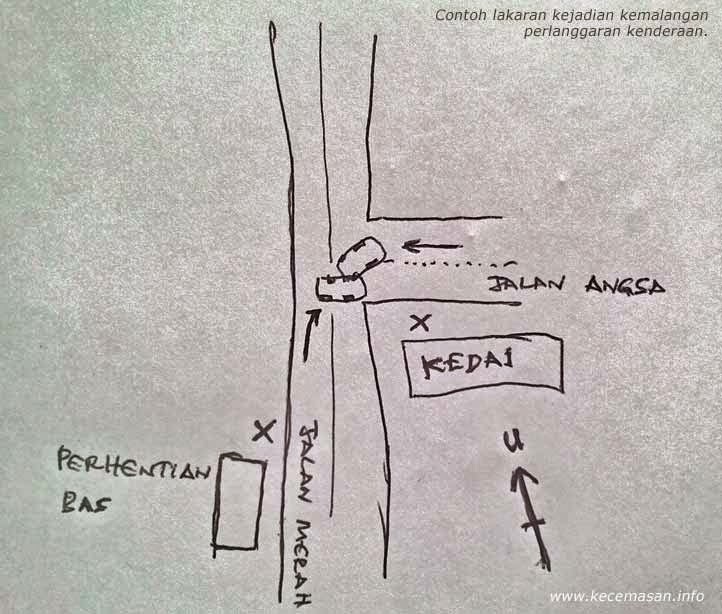 Contoh lakaran kejadian kemalangan
perlanggaran kenderaan.
JALAN ANGSA
X
KEDAI
X
PERHENTIAN
BAS
JALAN MERAH
U
www.kecemasan.info